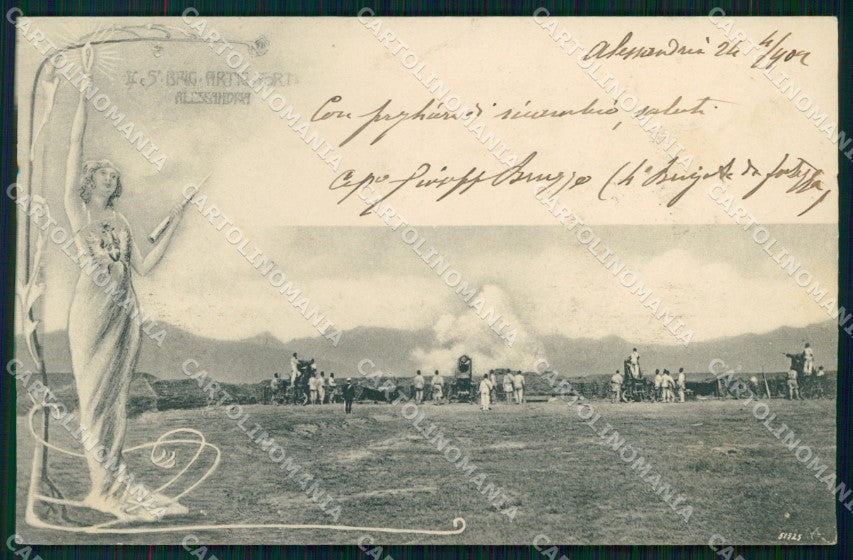 4ª e 5ª BRIG. ARTIG. FORT.
ALESSANDRIA
Alessandria 24 4/902
Con preghiera di ricambio, saluti
Capº Giusepp Bruzzo (4ª Brigata da fortezza)
51325
CARTOLINOMANIA